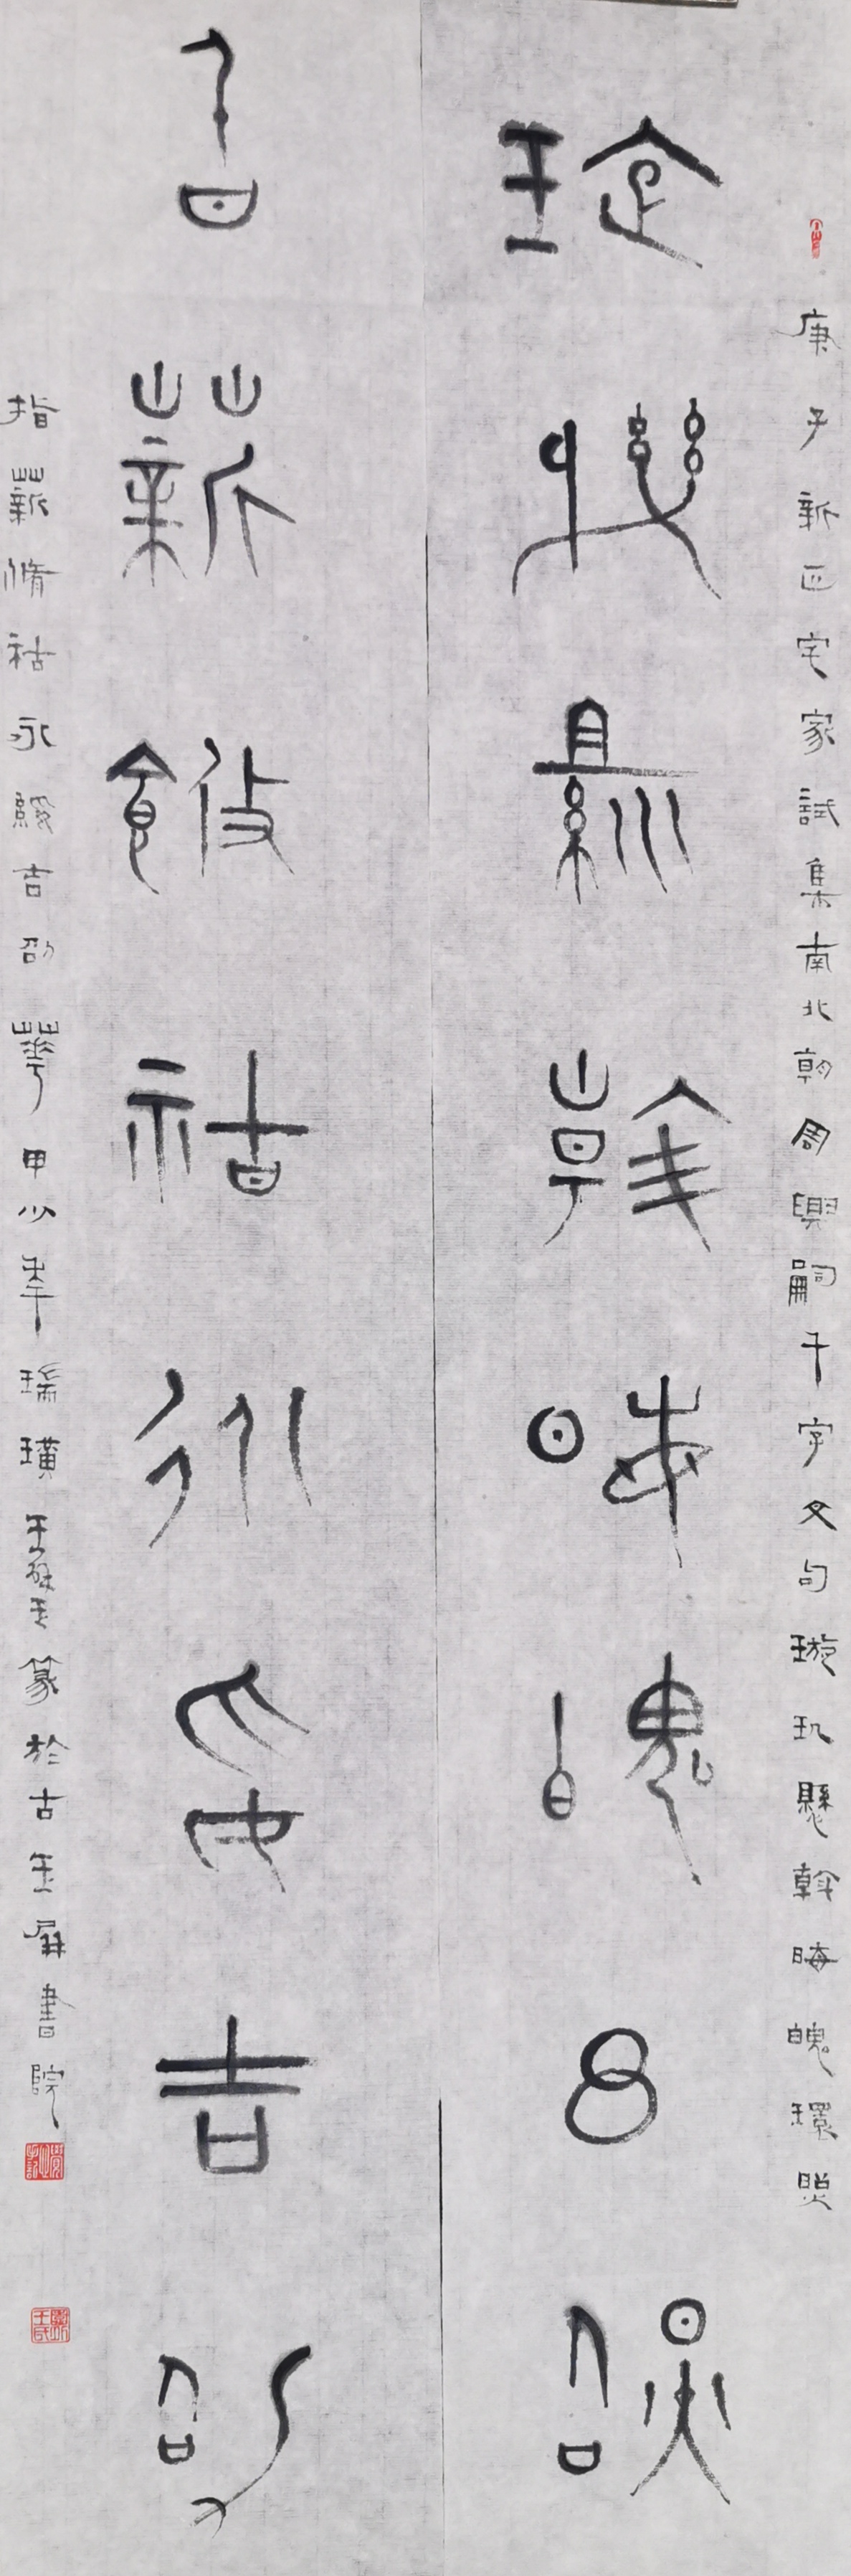 庚子新正宅家試集南北朝周興嗣千字文句璇玑懸斡晦魄環照
璇玑懸斡晦魄環照
指薪脩祜永綏吉劭
指薪脩祜永綏吉劭華甲少年瑞璜王篆於古玉屏書院